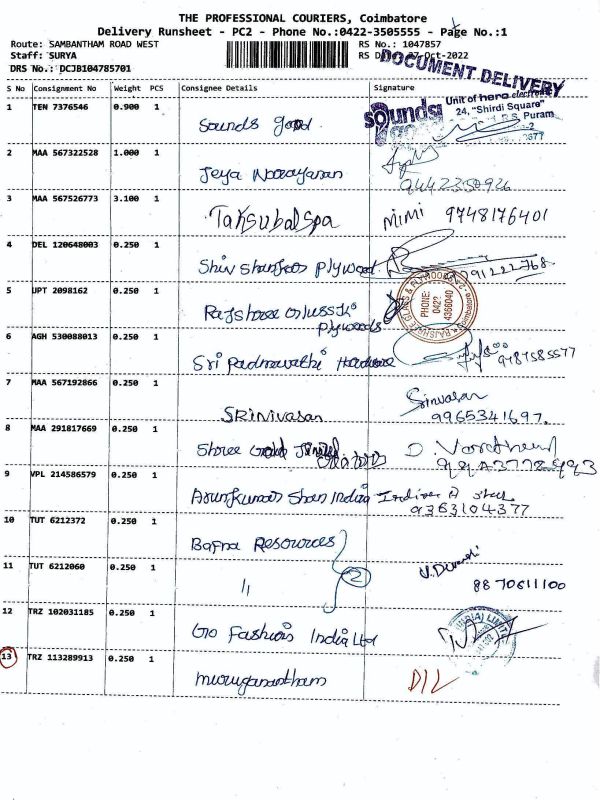 THE PROFESSIONAL COURIERS, Coimbatore
Delivery Runsheet - PC2 - Phone No.:0422-3505555 - Page No.:1
Route: SAMBANTHAM ROAD WEST RS No.: 1047857
Staff: SURYA RS D 27-Oct-2022
DRS No.: DCJB104785701
DOCUMENT DELIVERY
S No Consignment No Weight PCS Consignee Details Signature
1 TEN 7376546 0.900 1 Sounds good
Sounds good Unit of hero electronic
24, "Shirdi Square"
R.S. Puram
2 MAA 567322528 1.000 1 Jeya Narayanan
3 MAA 567526773 3.100 1 MIMI 9748176401
4 DEL 120648003 0.250 1 Plywood
5 UPT 2098162 0.250 1
Plywoods
RAJSHREE GLASS & PLYWOODS
PHONE:
0422
4366040
Coimbatore
6 AGH 530088013 0.250 1 Sri Padmavathi Hardware 9787585577
7 MAA 567192866 0.250 1 SRINIVASAN Srinivasan
9965341697
8 MAA 291817669 0.250 1 Shree Gold
9 VPL 214586579 0.250 1 Arunkumar Shan India
9363104377
10 TUT 6212372 0.250 1 Bafna Resources
2
11 TUT 6212060 0.250 1 11 8870611100
12 TRZ 102031185 0.250 1 Go Fashions India Ltd
13 TRZ 113289913 0.250 1 Muruganantham D/L